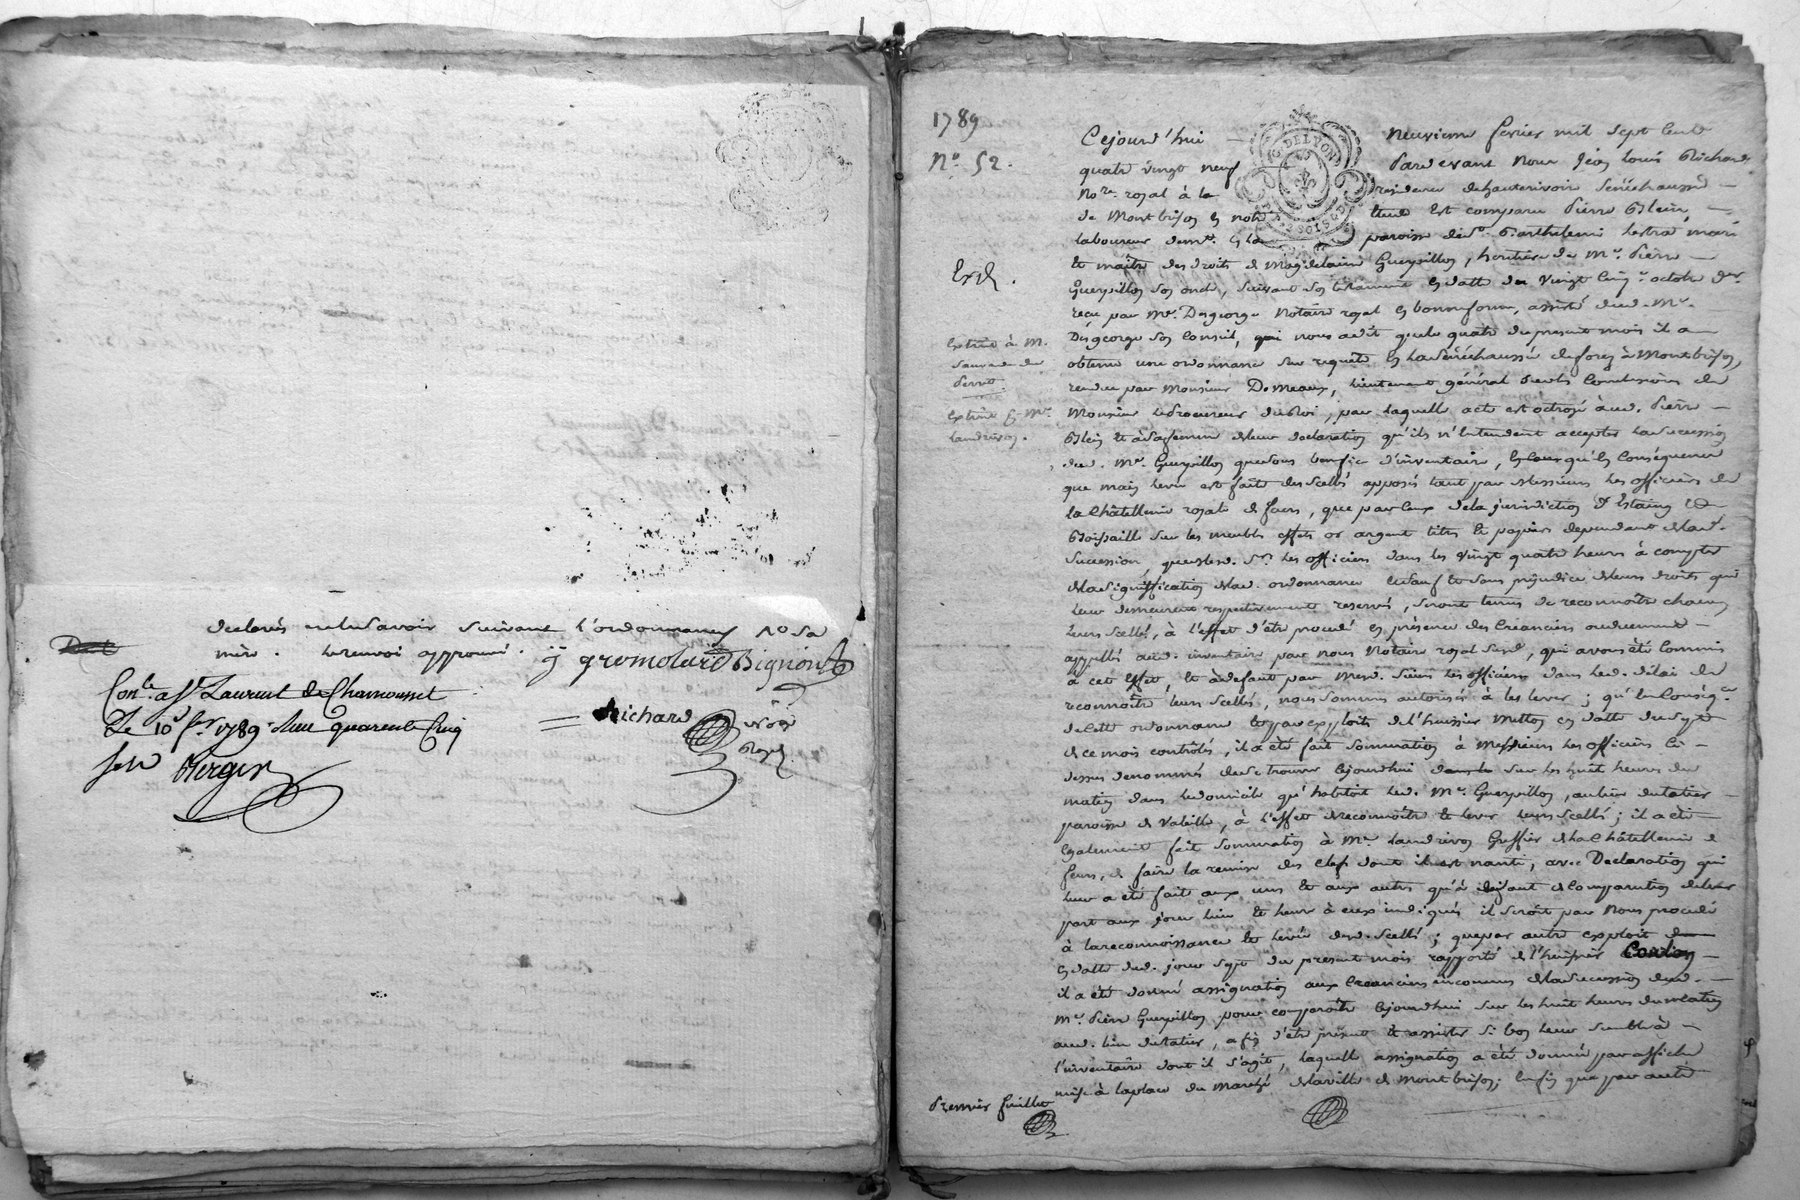 declarés suivant l'ordonnance
mère. le renvoi approuvé. j gromolard Bignon
Con.lé a S.t Laurent de Chamousset
Le 10 f.er 1789. Reçu quarente Cinq
sols Berger
Richard no.re
Royal
1789
N.o 52.
Exp.
Extrait à M.
Extrait p. M.e
Landrivon.
G. DE LYON
Cejourd'hui neuvieme fevrier mil sept cents
quatre vingt neuf Pardevant Nous Jean Louis Richard
No.re royal à la residence de hauterivoire Sénéchaussée
de Montbrison en notre Etude Est comparu Pierre Blein
laboureur dem.t en la paroisse de S.t Barthelemi Lestra mari
et maitre des droits de Magdelaine Guerpillon, heritiere de M.e Pierre
Guerpillon son oncle, suivant son testament en datte du Vingt Cinq octobre d.er
reçu par M.e Desgeorge Notaire royal en bonneforme, assisté dud. M.e
Desgeorge son Conseil, qui nous a dit que le quatre du present mois il a
obtenu une ordonnance sur requete en la Sénéchaussée de forez à Montbrison,
rendue par Monsieur De Meaux, lieutenant général sur les Conclusions de
Monsieur le Procureur du Roi, par laquelle acte est octroyé aud. Pierre
Blein et à sa femme de leur declaration qu'ils n'Entendent accepter la succession
dud. M.e Guerpillon que sous benefice d'inventaire, en conséquence
que main levée est faite des scellés apposés tant par Messieurs les officiers de
la Châtellenie royale de feurs, que par ceux de la jurisdiction d'Estaing et
Boissaille sur les meubles effets or argent titres et papiers dependant de lad.
Succession, que lesd. S.rs les officiers dans les vingt quatre heures à compter
de la signiffication de lad. ordonnance et sans prejudice de leurs droits qui
leur demeurent respectivement reservés, seront tenus de reconnoitre chacun
leurs scellés, à l'effet d'être procédé en présence des Créanciers
appellés aud. inventaire par nous Notaire royal sous.né, qui avons été Commis
à cet effet, et à defaut par mesd. Sieurs les officiers dans led. délai de
reconnoitre leurs scellés, nous sommes autorisés à les lever; qu'en Conséq.ce
de cette ordonnance et par exploits de l'huissier en datte du sept
de ce mois controlés, il a été fait Sommation à Messieurs les officiers ci-
dessus denommés de se trouver cejourdhui sur les huit heures du
matin dans le domicile qu'habitoit led. M.e Guerpillon, au lieu du tatier
paroisse de Valeille, à l'effet de reconnoitre et lever leurs scellés; il a été
Egalement fait Sommation à M.e Landrivon Greffier de la Châtellenie de
feurs, de faire la remise des clefs dont il est nanti, avec Declaration qui
leur a été faite aux uns et aux autres qu'à defaut de Comparution de leur
part aux jour lieu et heure à eux indiqués il seroit par Nous procédé
à la reconnoissance et levée desd. scellés; que par autre exploit
en datte dud. jour sept du present mois rapporté de l'huissier Cordon
il a été donné assignation aux Creanciers inconnus de la succession dud.
M.e Pierre Guerpillon pour comparoître cejourdhui sur les huit heures du matin
aud. lieu du tatier, afin d'être présent et assister si bon leur semble à
l'inventaire dont il s'agit, laquelle assignation a été donnée par affiche
mise à la place du Marché de la ville de Montbrison; Enfin que par autre
Premier feuillet